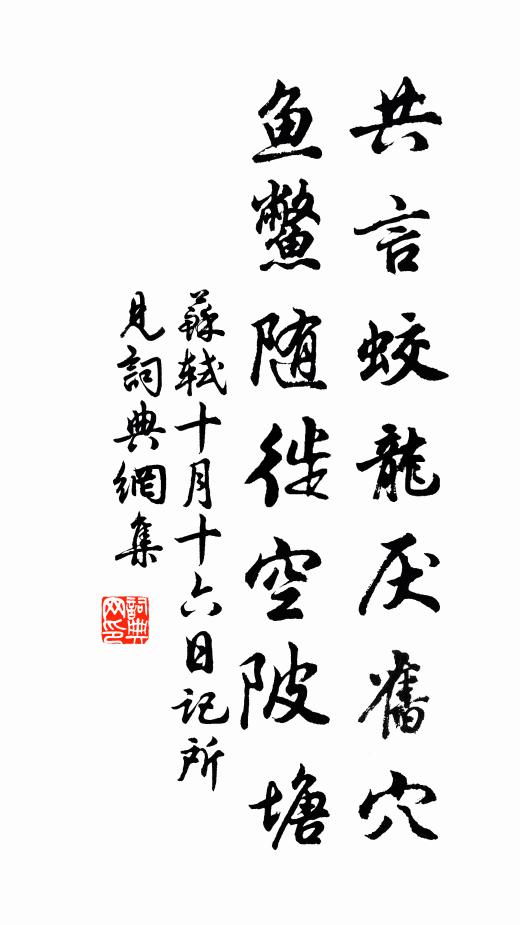 共言蛟龍厌舊穴
鱼鱉随徙空陂塘
蘇軾十月十六日記所
見詞典網集
詞典
网印